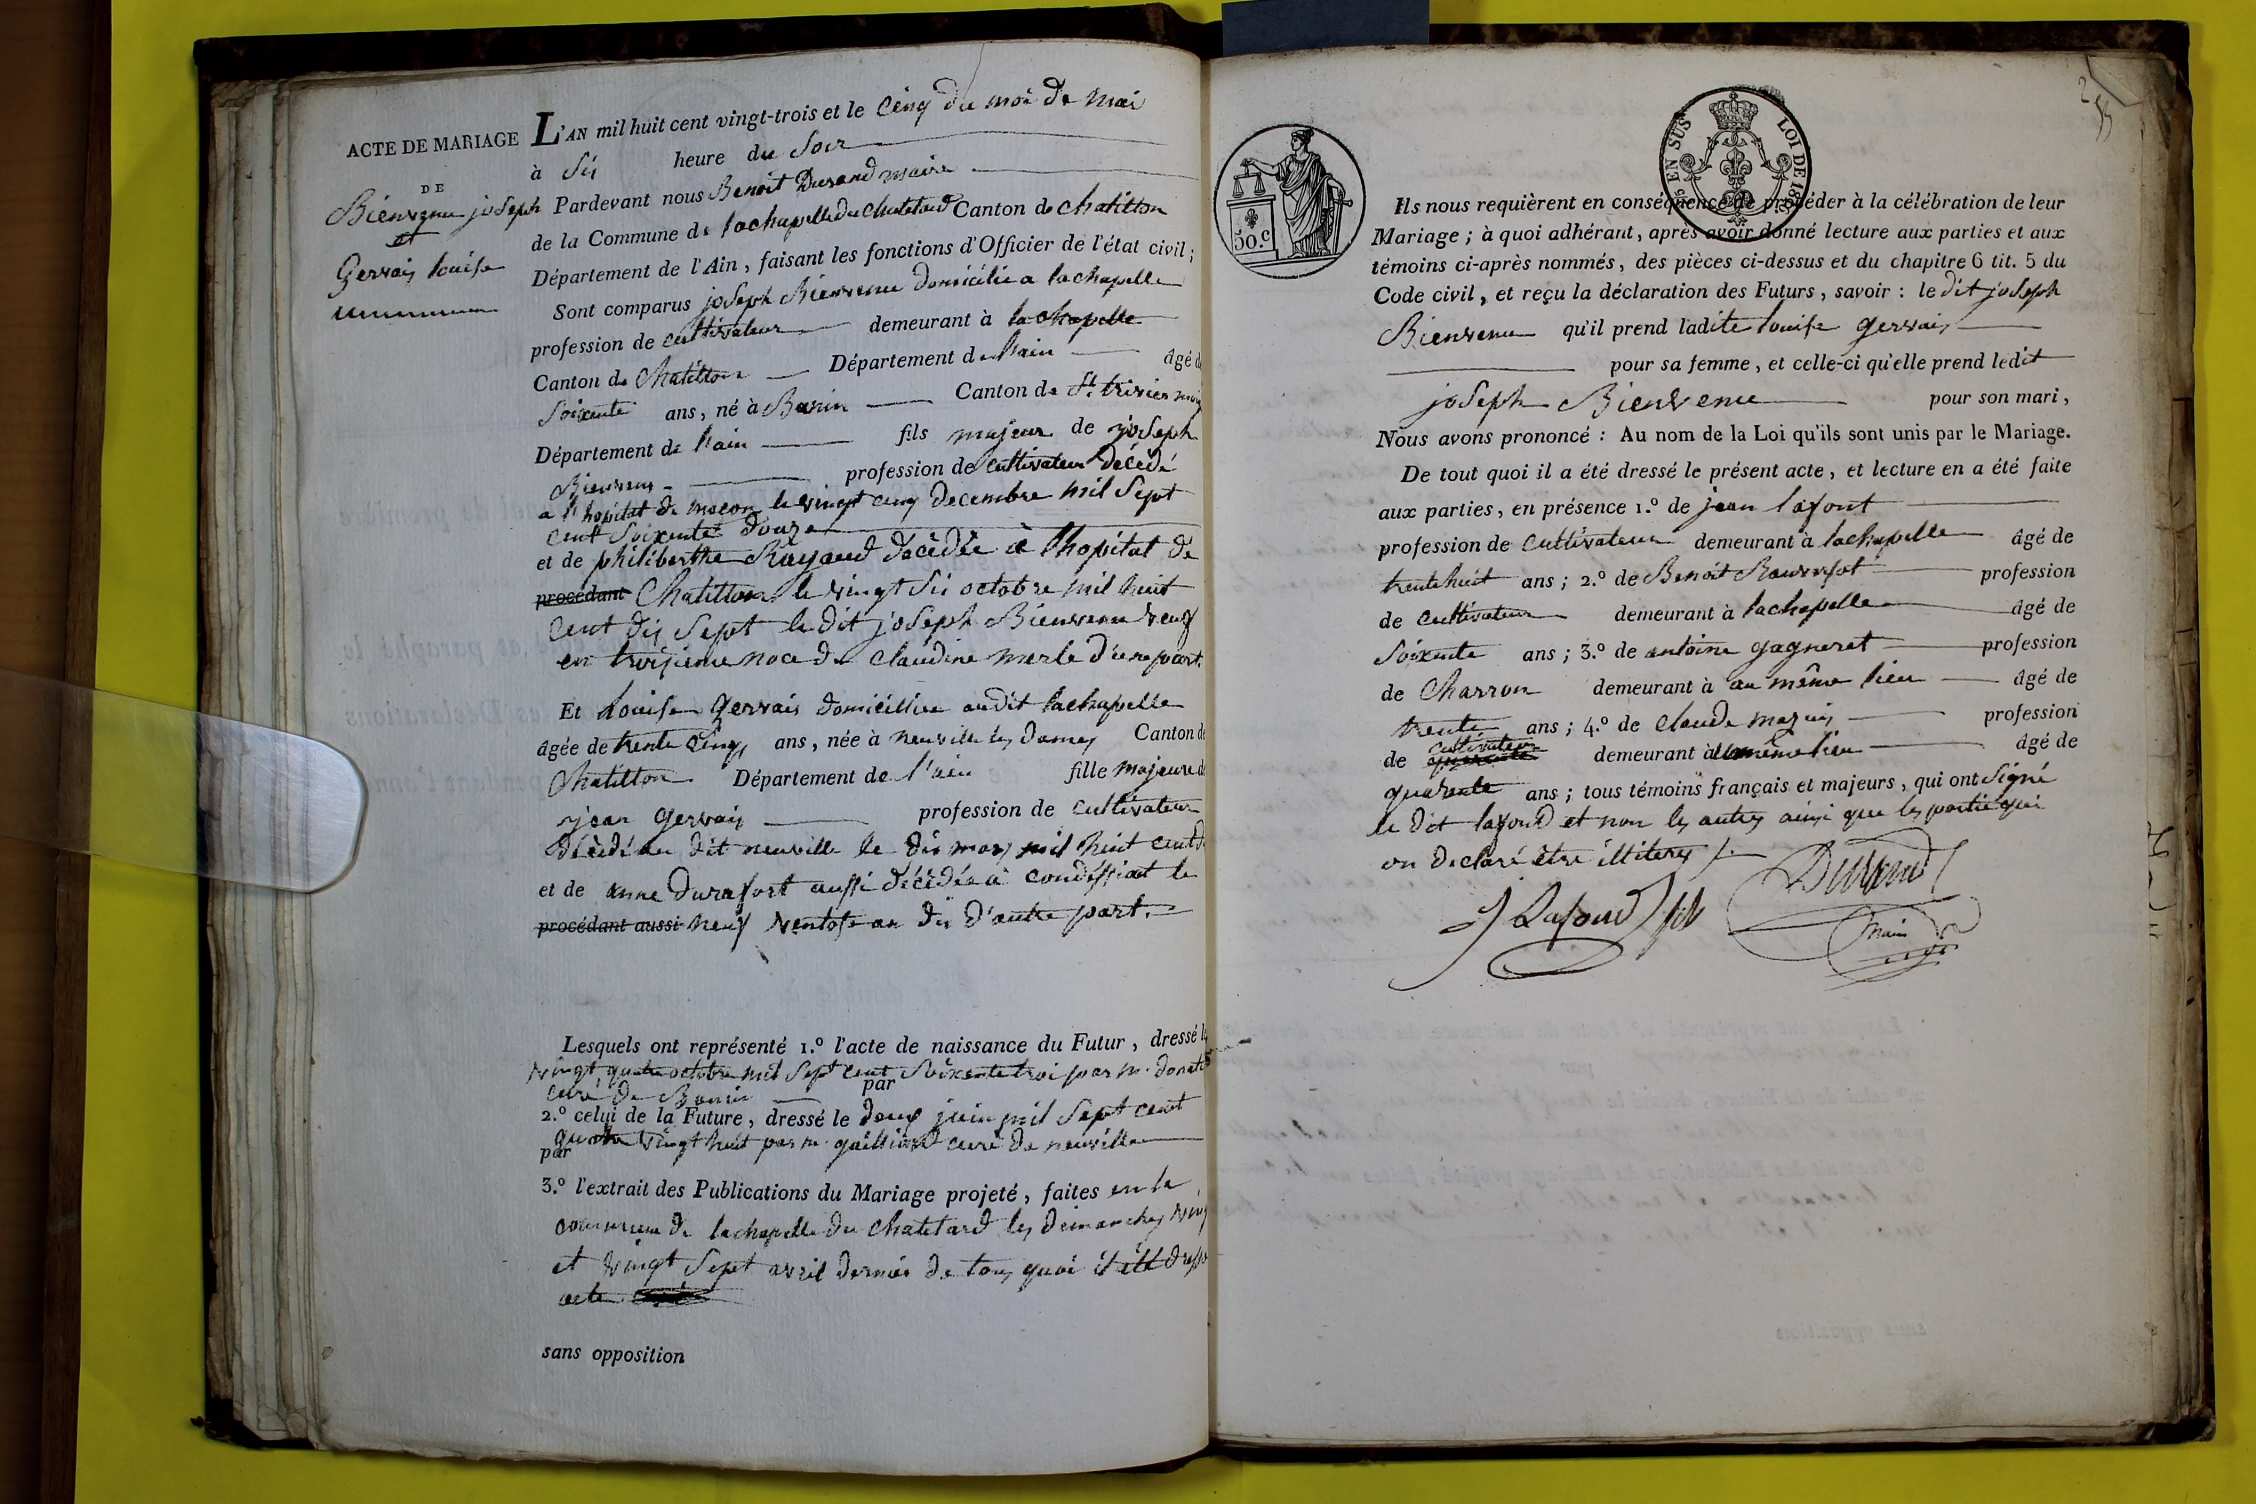 ACTE DE MARIAGE
DE
Bienvenu joseph
et
Gervais louise
L'AN mil huit cent vingt-trois et le cinq du moi de mai
à six heure du soir
Pardevant nous Benoit Durand maire
de la Commune de lachapelle du chatelard Canton de chatillon
Département de l'Ain, faisant les fonctions d'Officier de l'état civil;
Sont comparus joseph Bienvenu domicilié a lachapelle
profession de cultivateur demeurant à la chapelle
Canton de Chatillon Département de lain âgé de
soixente ans, né à Banin Canton de St. trivier
Département de lain fils majeur de joseph
Bienvenu profession de cultivateur décédé
a l'hopital de macon le vingt cinq decembre mil sept
cent soixente douze
et de philiberthe Rayaud décédée à lhopital de
procédant Chatillon le vingt six octobre mil huit
cent dix sept le dit joseph Bienvenu veuf
en troisieme noce de claudine merle d'une part.
Et Louise Gervais domicilliée audit lachapelle
âgée de trente cinq ans, née à neuville les dames Canton de
Chatillon Département de l'ain fille majeure de
jean gervais profession de cultivateur
décédé au dit neuville le dix mars mil huit cent
et de anne durafort aussi décédée à condéssiat le
procédant aussi neuf ventose an dix d'autre part.
Lesquels ont représenté 1.º l'acte de naissance du Futur, dressé le
vingt quatre octobre mil sept cent soixente troi par m. donat
curé de Banin par
2.º celui de la Future, dressé le deux juin mil sept cent
quatre vingt huit par m. gaillard curé de neuville
par
3.º l'extrait des Publications du Mariage projeté, faites en la
commune de lachapelle du chatelard les dimanches
et vingt sept avril dernier de tous quoi
acte
sans opposition
5.es EN SUS LOI DE 18
50.c
Ils nous requièrent en conséquence de procéder à la célébration de leur
Mariage; à quoi adhérant, après avoir donné lecture aux parties et aux
témoins ci-après nommés, des pièces ci-dessus et du chapitre 6 tit. 5 du
Code civil, et reçu la déclaration des Futurs, savoir: le dit joseph
Bienvenu qu'il prend ladite louise gervais
pour sa femme, et celle-ci qu'elle prend ledit
joseph Bienvenu pour son mari,
Nous avons prononcé: Au nom de la Loi qu'ils sont unis par le Mariage.
De tout quoi il a été dressé le présent acte, et lecture en a été faite
aux parties, en présence 1.º de jean lafont
profession de cultivateur demeurant à lachapelle âgé de
trente huit ans; 2.º de Benoit profession
de cultivateur demeurant à lachapelle âgé de
soixente ans; 3.º de antoine gagneret profession
de Charron demeurant à au même lieu âgé de
trente ans; 4.º de claude profession
de cultivateur demeurant à au même lieu âgé de
quarente ans; tous témoins français et majeurs, qui ont signé
le dit lafond et non les autres ainsi que les partie qui
on declaré être illiteres
J Lafond fils
Durand
maire